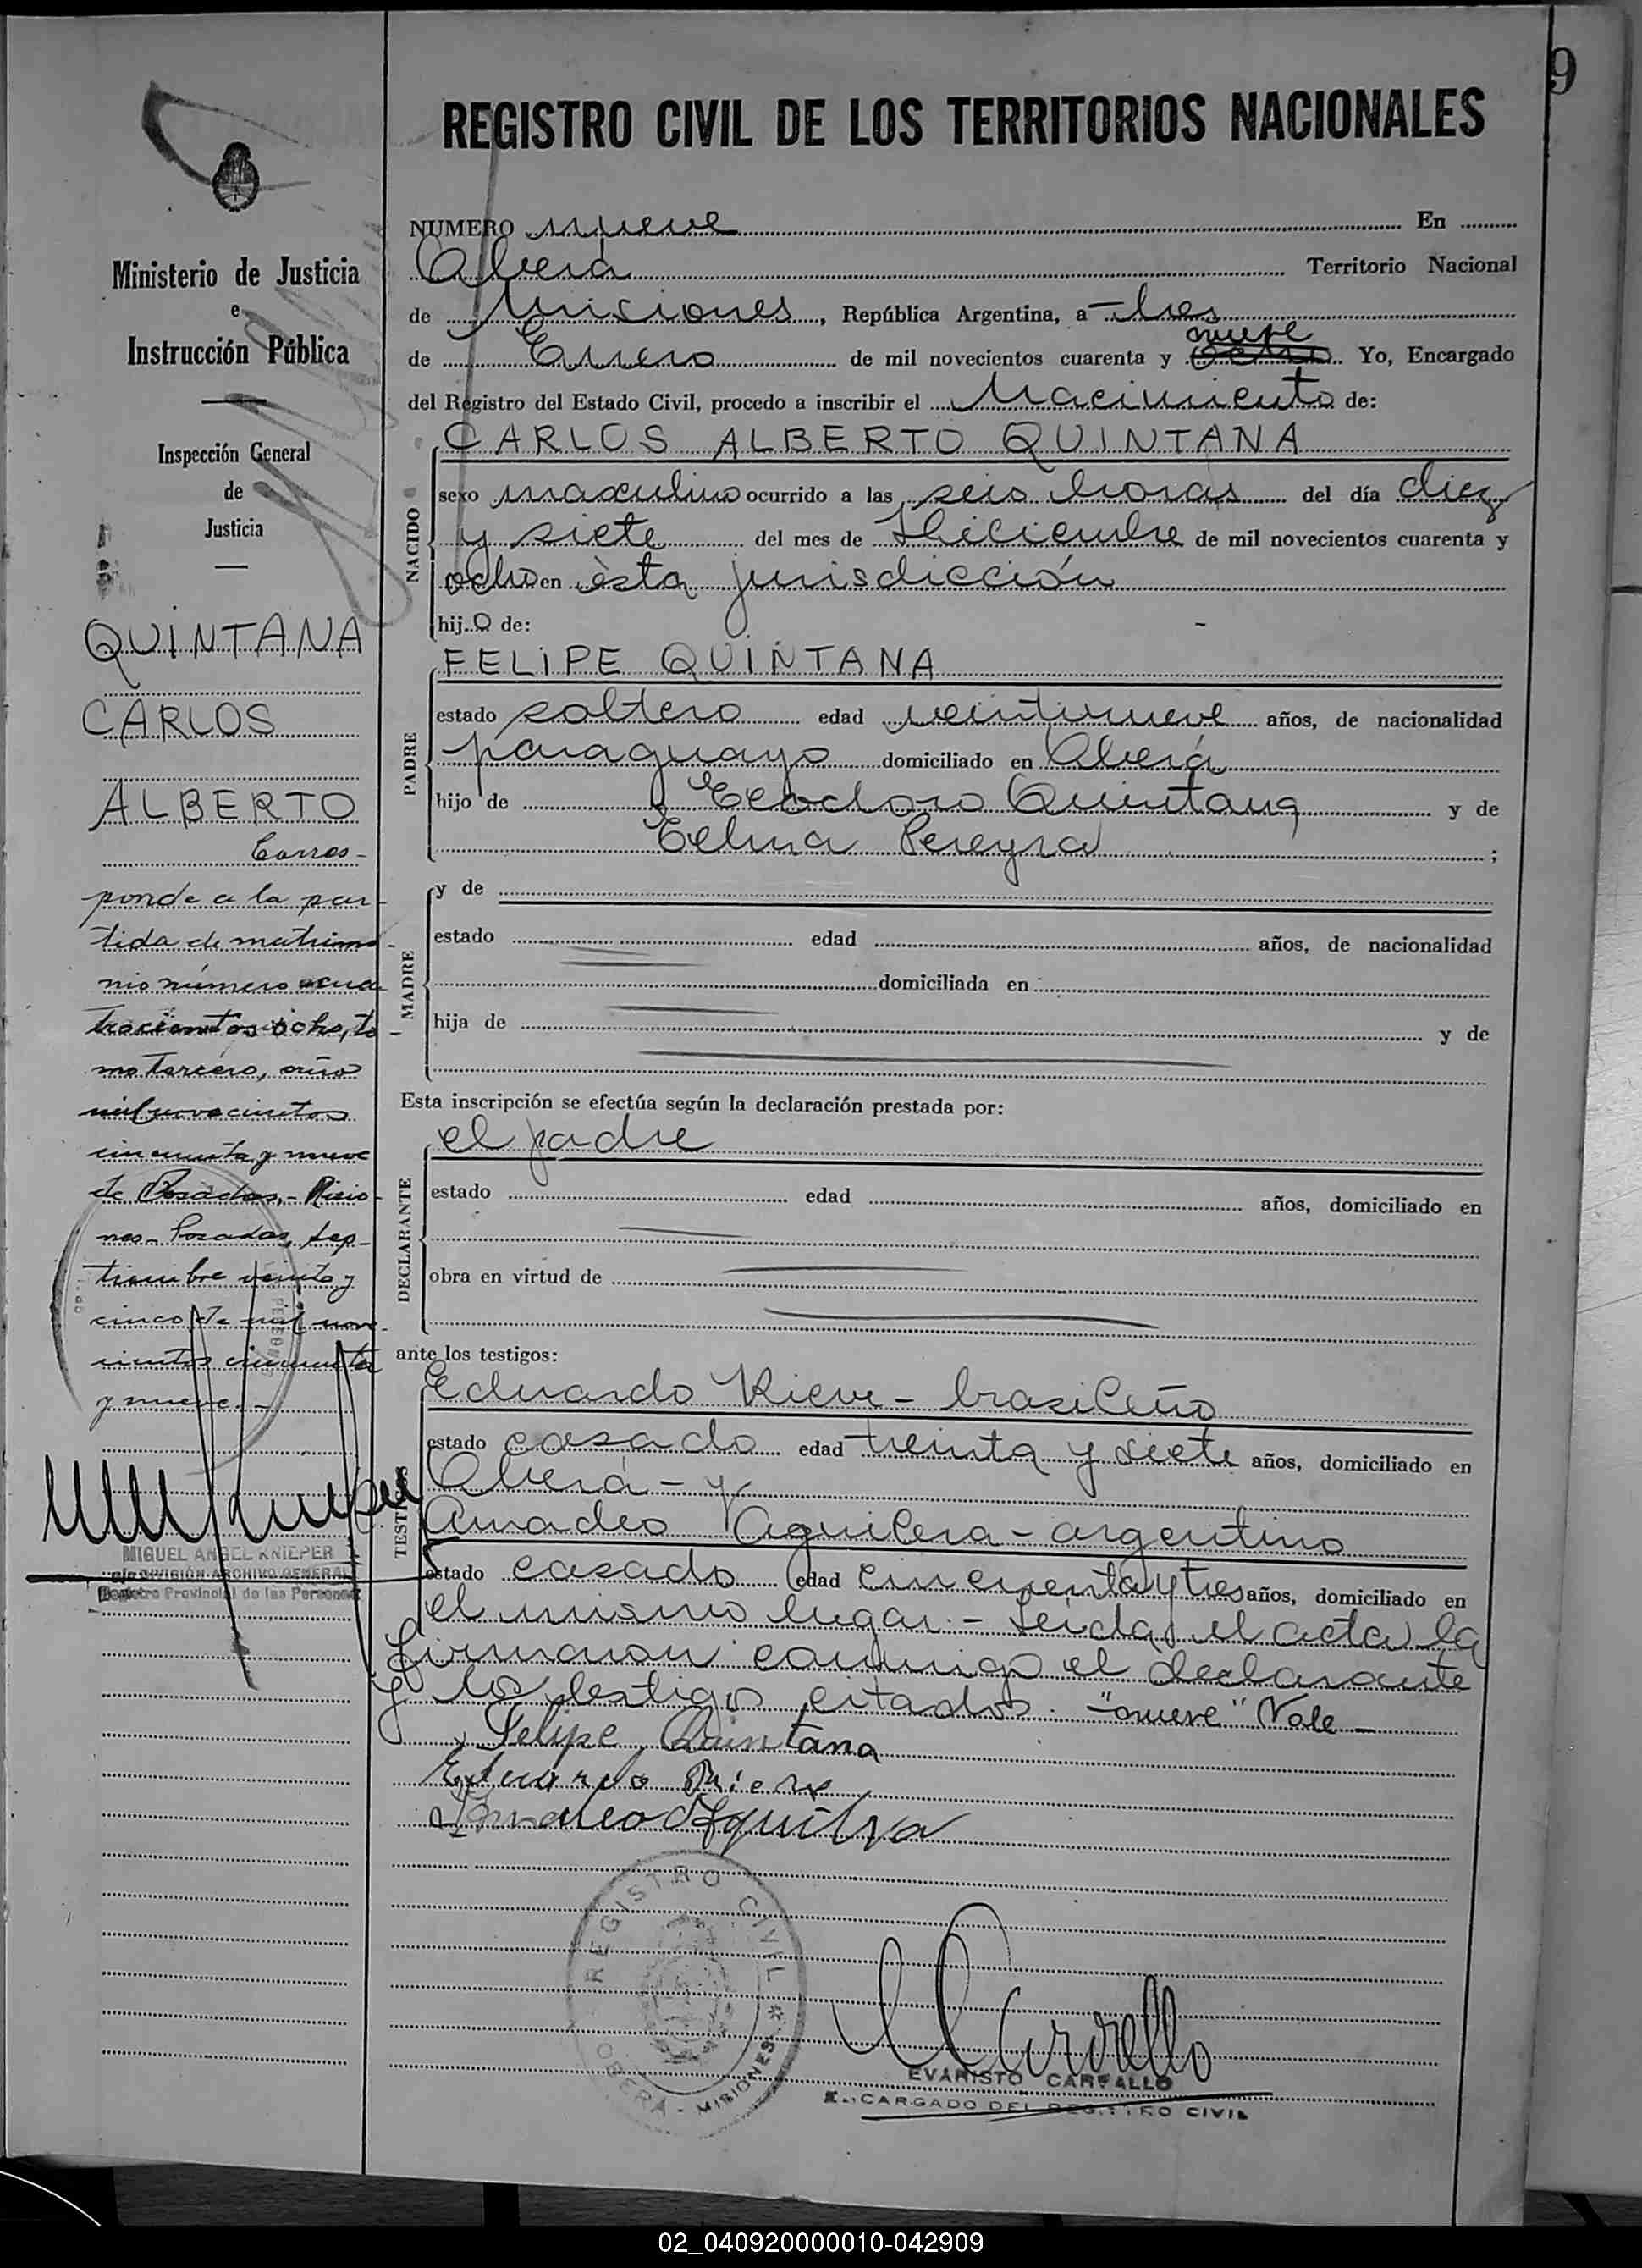 9
REGISTRO CIVIL DE LOS TERRITORIOS NACIONALES
Ministerio de Justicia
e
Instrucción Pública
Inspección General
de
Justicia
QUINTANA
CARLOS
ALBERTO
Corres-
ponde a la par-
tida de matrimo-
nio número cua-
trocientos ocho, to-
mo tercero, año
mil novecientos
cincuenta y nueve
de Posadas,- Misio-
nes- Posadas, sep-
tiembre veinte y
cinco de mil nove-
cientos cincuenta
y nueve.-
MIGUEL ANGEL KNIEPER
DIVISIÓN ARCHIVO GENERAL
Registro Provincial de las Personas
NUMERO nueve En
Oberá Territorio Nacional
de Misiones, República Argentina, a tres
nueve
de Enero de mil novecientos cuarenta y ocho Yo, Encargado
del Registro del Estado Civil, procedo a inscribir el Nacimiento de:
NACIDO
CARLOS ALBERTO QUINTANA
sexo masculino ocurrido a las seis horas del día diez
y siete del mes de Diciembre de mil novecientos cuarenta y
ocho en ésta jurisdicción
hijo de:
PADRE
FELIPE QUINTANA
estado soltero edad veintinueve años, de nacionalidad
paraguayo domiciliado en Oberá
hijo de Quintana y de
Pereyra ;
MADRE
y de
estado edad años, de nacionalidad
domiciliada en
hija de y de
Esta inscripción se efectúa según la declaración prestada por:
DECLARANTE
el padre
estado edad años, domiciliado en
obra en virtud de
ante los testigos:
TESTIGOS
Eduardo - brasileño
estado casado edad treinta y siete años, domiciliado en
Oberá - y
Amadeo Aguilera - argentino
estado casado edad cincuenta y tres años, domiciliado en
el mismo lugar.- Leida el acta la
firmaron conmigo el declarante
y los testigos citados. "nueve" Vale-
Felipe Quintana
Eduardo
Amadeo Aguilera
REGISTRO CIVIL
OBERA - MISIONES
EVARISTO CARFALLO
ENCARGADO DEL REGISTRO CIVIL
02_040920000010-042909